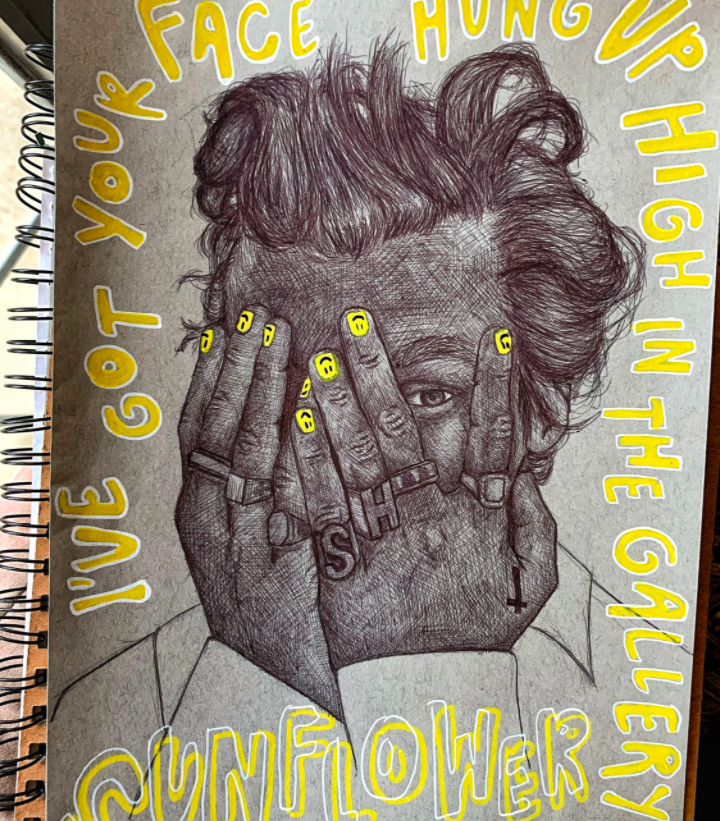 I'VE GOT YOUR FACE HUNG UP HIGH IN THE GALLERY
SUNFLOWER
S H